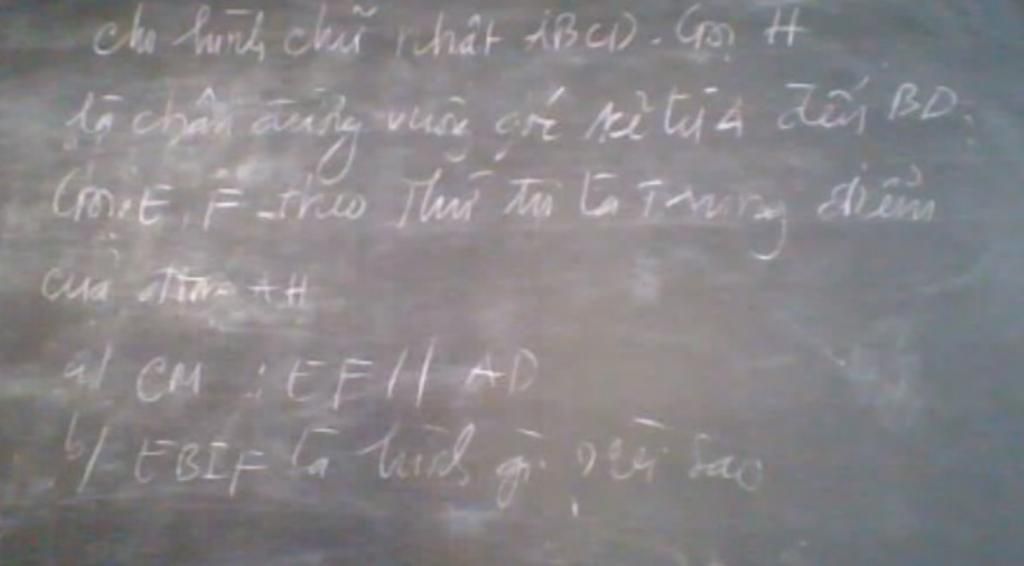 cho hình chữ nhật ABCD. Gọi H
là chân đường vuông góc kẻ từ A đến BD.
Gọi E, F theo thứ tự là Trung điểm
của AH
a/ CM : EF // AD
b/ EBIF là hình gì? Vì sao